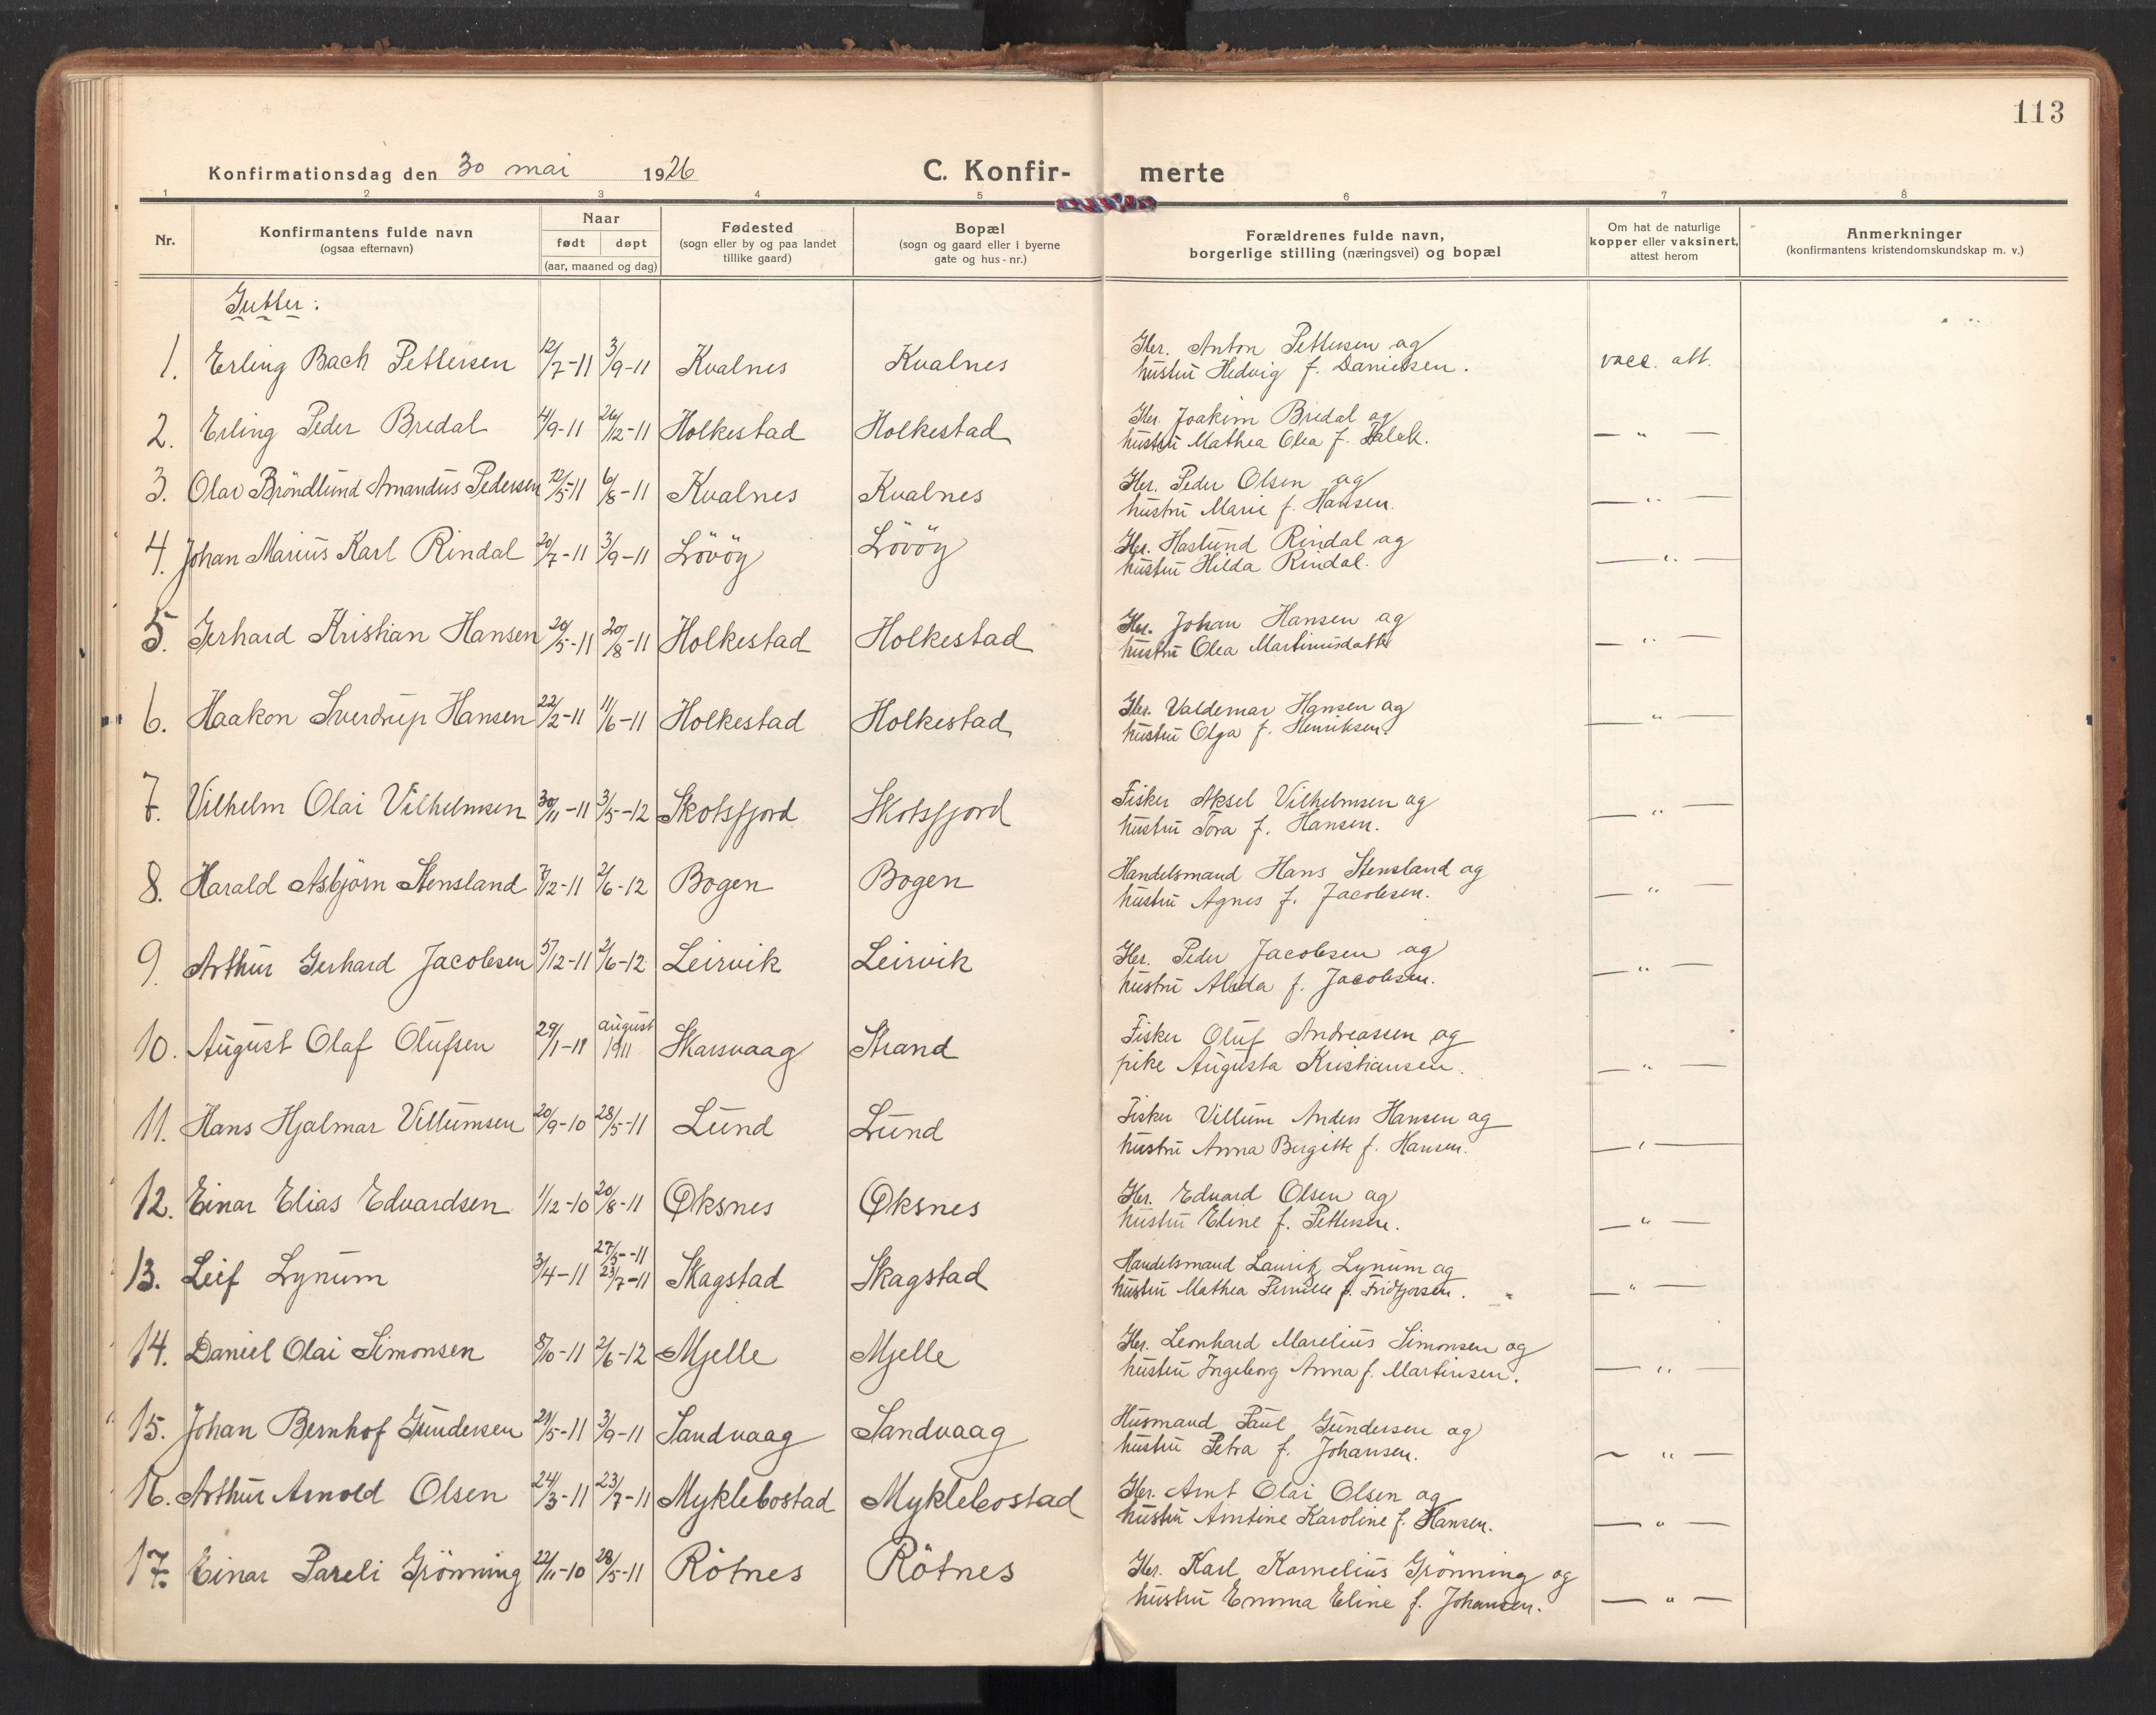 113
Konfirmationsdag den 30 mai 1926 C. Konfir- merte
1 2 3 4 5 6 7 8
Nr. Konfirmantens fulde navn (ogsaa efternavn) Naar født døpt (aar, maaned og dag) Fødested (sogn eller by og paa landet tillike gaard) Bopæl (sogn og gaard eller i byerne gate og hus-nr.) Forældrenes fulde navn, borgerlige stilling (næringsvei) og bopæl Om hat de naturlige kopper eller vaksinert, attest herom Anmerkninger (konfirmantens kristendomskundskap m. v.)
Gutter:
1. Erling Bach Pettersen 12/7-11 3/9-11 Kvalnes Kvalnes Gbr. Anton Pettersen og vacc. att.
hustru Hedvig f. Danielsen.
2. Erling Peder Bredal 4/9-11 26/12-11 Holkestad Holkestad Gbr. Joakim Bredal og — " —
hustru Mathea Olea f. Falch.
3. Olav Bröndlund Amandus Pedersen 12/5-11 6/8-11 Kvalnes Kvalnes Gbr. Peder Olsen og — " —
hustru Marie f. Hansen.
4. Johan Marius Karl Rindal 20/7-11 3/9-11 Lövöy Lövöy Gbr. Haslund Rindal og — " —
hustru Hilda Rindal.
5. Gerhard Kristian Hansen 20/5-11 20/8-11 Holkestad Holkestad Gbr. Johan Hansen og — " —
hustru Olea Martinusdatter
6. Haakon Sverdrup Hansen 22/2-11 11/6-11 Holkestad Holkestad Gbr. Valdemar Hansen og — " —
hustru Olga f. Henriksen.
7. Vilhelm Olai Vilhelmsen 30/11-11 3/5-12 Skotsfjord Skotsfjord Fisker Aksel Vilhelmsen og — " —
hustru Tora f. Hansen.
8. Harald Asbjörn Stensland 7/12-11 2/6-12 Bogen Bogen Handelsmand Hans Stensland og — " —
hustru Agnes f. Jacobsen.
9. Arthur Gerhard Jacobsen 5/12-11 2/6-12 Leirvik Leirvik Gbr. Peder Jacobsen og — " —
hustru Alida f. Jacobsen.
10. August Olaf Olufsen 29/1-11 august 1911 Skarsvaag Strand Fisker Oluf Andreassen og — " —
pike Augusta Kristiansen.
11. Hans Hjalmar Villumsen 20/9-10 28/5-11 Lund Lund Fisker Villum Anders Hansen og — " —
hustru Anna Birgitte f. Hansen.
12. Einar Elias Edvardsen 1/12-10 20/8-11 Øksnes Øksnes Gbr. Edvard Olsen og — " —
hustru Eline f. Pettersen.
13. Leif Lynum 3/4-11 27/5-11 23/7-11 Skagstad Skagstad Handelsmand Lauritz Lynum og — " —
hustru Mathea Pernille f. Fridtjofsen.
14. Daniel Olai Simonsen 8/10-11 2/6-12 Mjelle Mjelle Gbr. Leonhard Marelius Simonsen og — " —
hustru Ingeborg Anna f. Martinsen.
15. Johan Bernhof Gundersen 29/5-11 3/9-11 Sandvaag Sandvaag Husmand Paul Gundersen og — " —
hustru Petra f. Johansen.
16. Arthur Arnold Olsen 24/3-11 23/7-11 Myklebostad Myklebostad Gbr. Arnt Olai Olsen og — " —
hustru Arntine Karoline f. Hansen.
17. Einar Pareli Grönning 22/11-10 28/5-11 Rötnes Rötnes Gbr. Karl Kornelius Grönning og — " —
hustru Emma Eline f. Johansen.